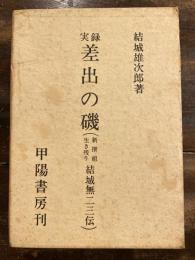 結城雄次郎著
実録
差出の磯
(新撰組
生き残り
結城無二三伝)
甲陽書房刊